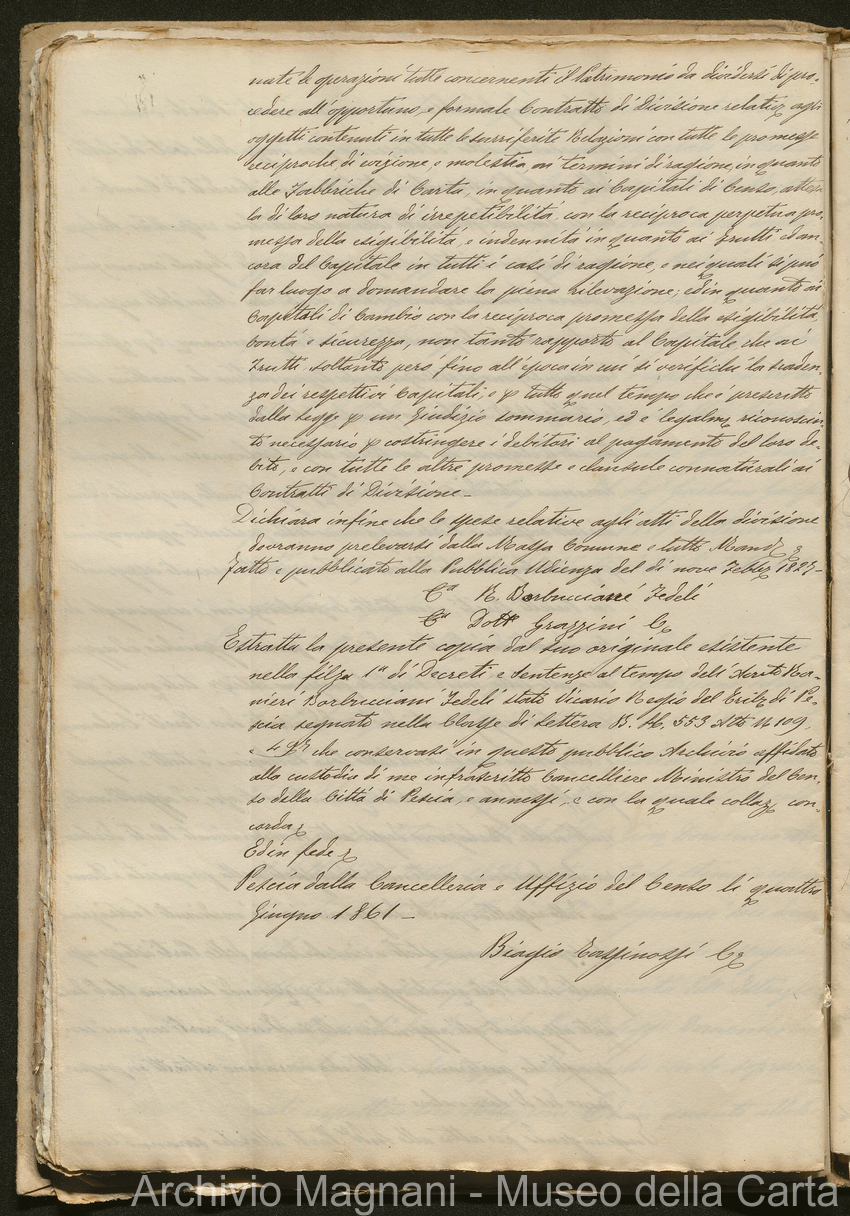 nate le operazioni tutte concernenti il Patrimonio da dividersi di pro-
cedere all'opportuno, e formale Contratto di Divisione relativ. agli
oggetti contenuti in tutte le surriferite Relazioni con tutte le promesse
reciproche di evizione, e molestia, nei termini di ragione, in quanto
alle Fabbriche di Carta, in quanto ai Capitali di Censo, attesa
la di loro natura di irrepetibilità, con la reciproca perpetua pro-
messa della esigibilità, e indennità in quanto ai frutti ed an-
cora del Capitale in tutti i casi di ragione, e nei quali si può
far luogo a domandare la piena rilevazione; ed in quanto ai
Capitali di Cambio con la reciproca promessa della esigibilità,
bontà e sicurezza, non tanto rapporto al Capitale che ai
Frutti soltanto però fino all'epoca in cui si verifichi la scaden-
za dei respettivi Capitali, e p tutto quel tempo che è prescritto
dalla Legge p un Giudizio sommario, ed è legalm. riconosciu-
to necessario p costringere i debitori al pagamento del loro de-
bito, e con tutte le altre promesse e clausule connaturali ai
Contratti di Divisione -
Dichiara infine che le spese relative agli atti della divisione
dovranno prelevarsi dalla Massa Comune e tutto Mand.
Fatto e pubblicato alla Pubblica Udienza del dì nove Febb. 1827 -
C.a R. Borbucciani Fedeli
C.a Dott. Grazzini C.
Estratta la presente copia dal suo originale esistente
nella filza 1a di Decreti e Sentenze al tempo dell' Ra-
nieri Borbucciani Fedeli stato Vicario Regio del Trib. di Pe-
scia segnata nella Classe di Lettera B. H. 553 N 109,
che conservasi in questo pubblico Archivio affidato
alla custodia di me infrascritto Cancelliere Ministro del Cen-
so della Città di Pescia, e annessi, e con la quale collaz. con-
corda
Ed in fede
Pescia dalla Cancelleria e Uffizio del Censo li quattro
Giugno 1861 -
Biagio C.
Archivio Magnani - Museo della Carta